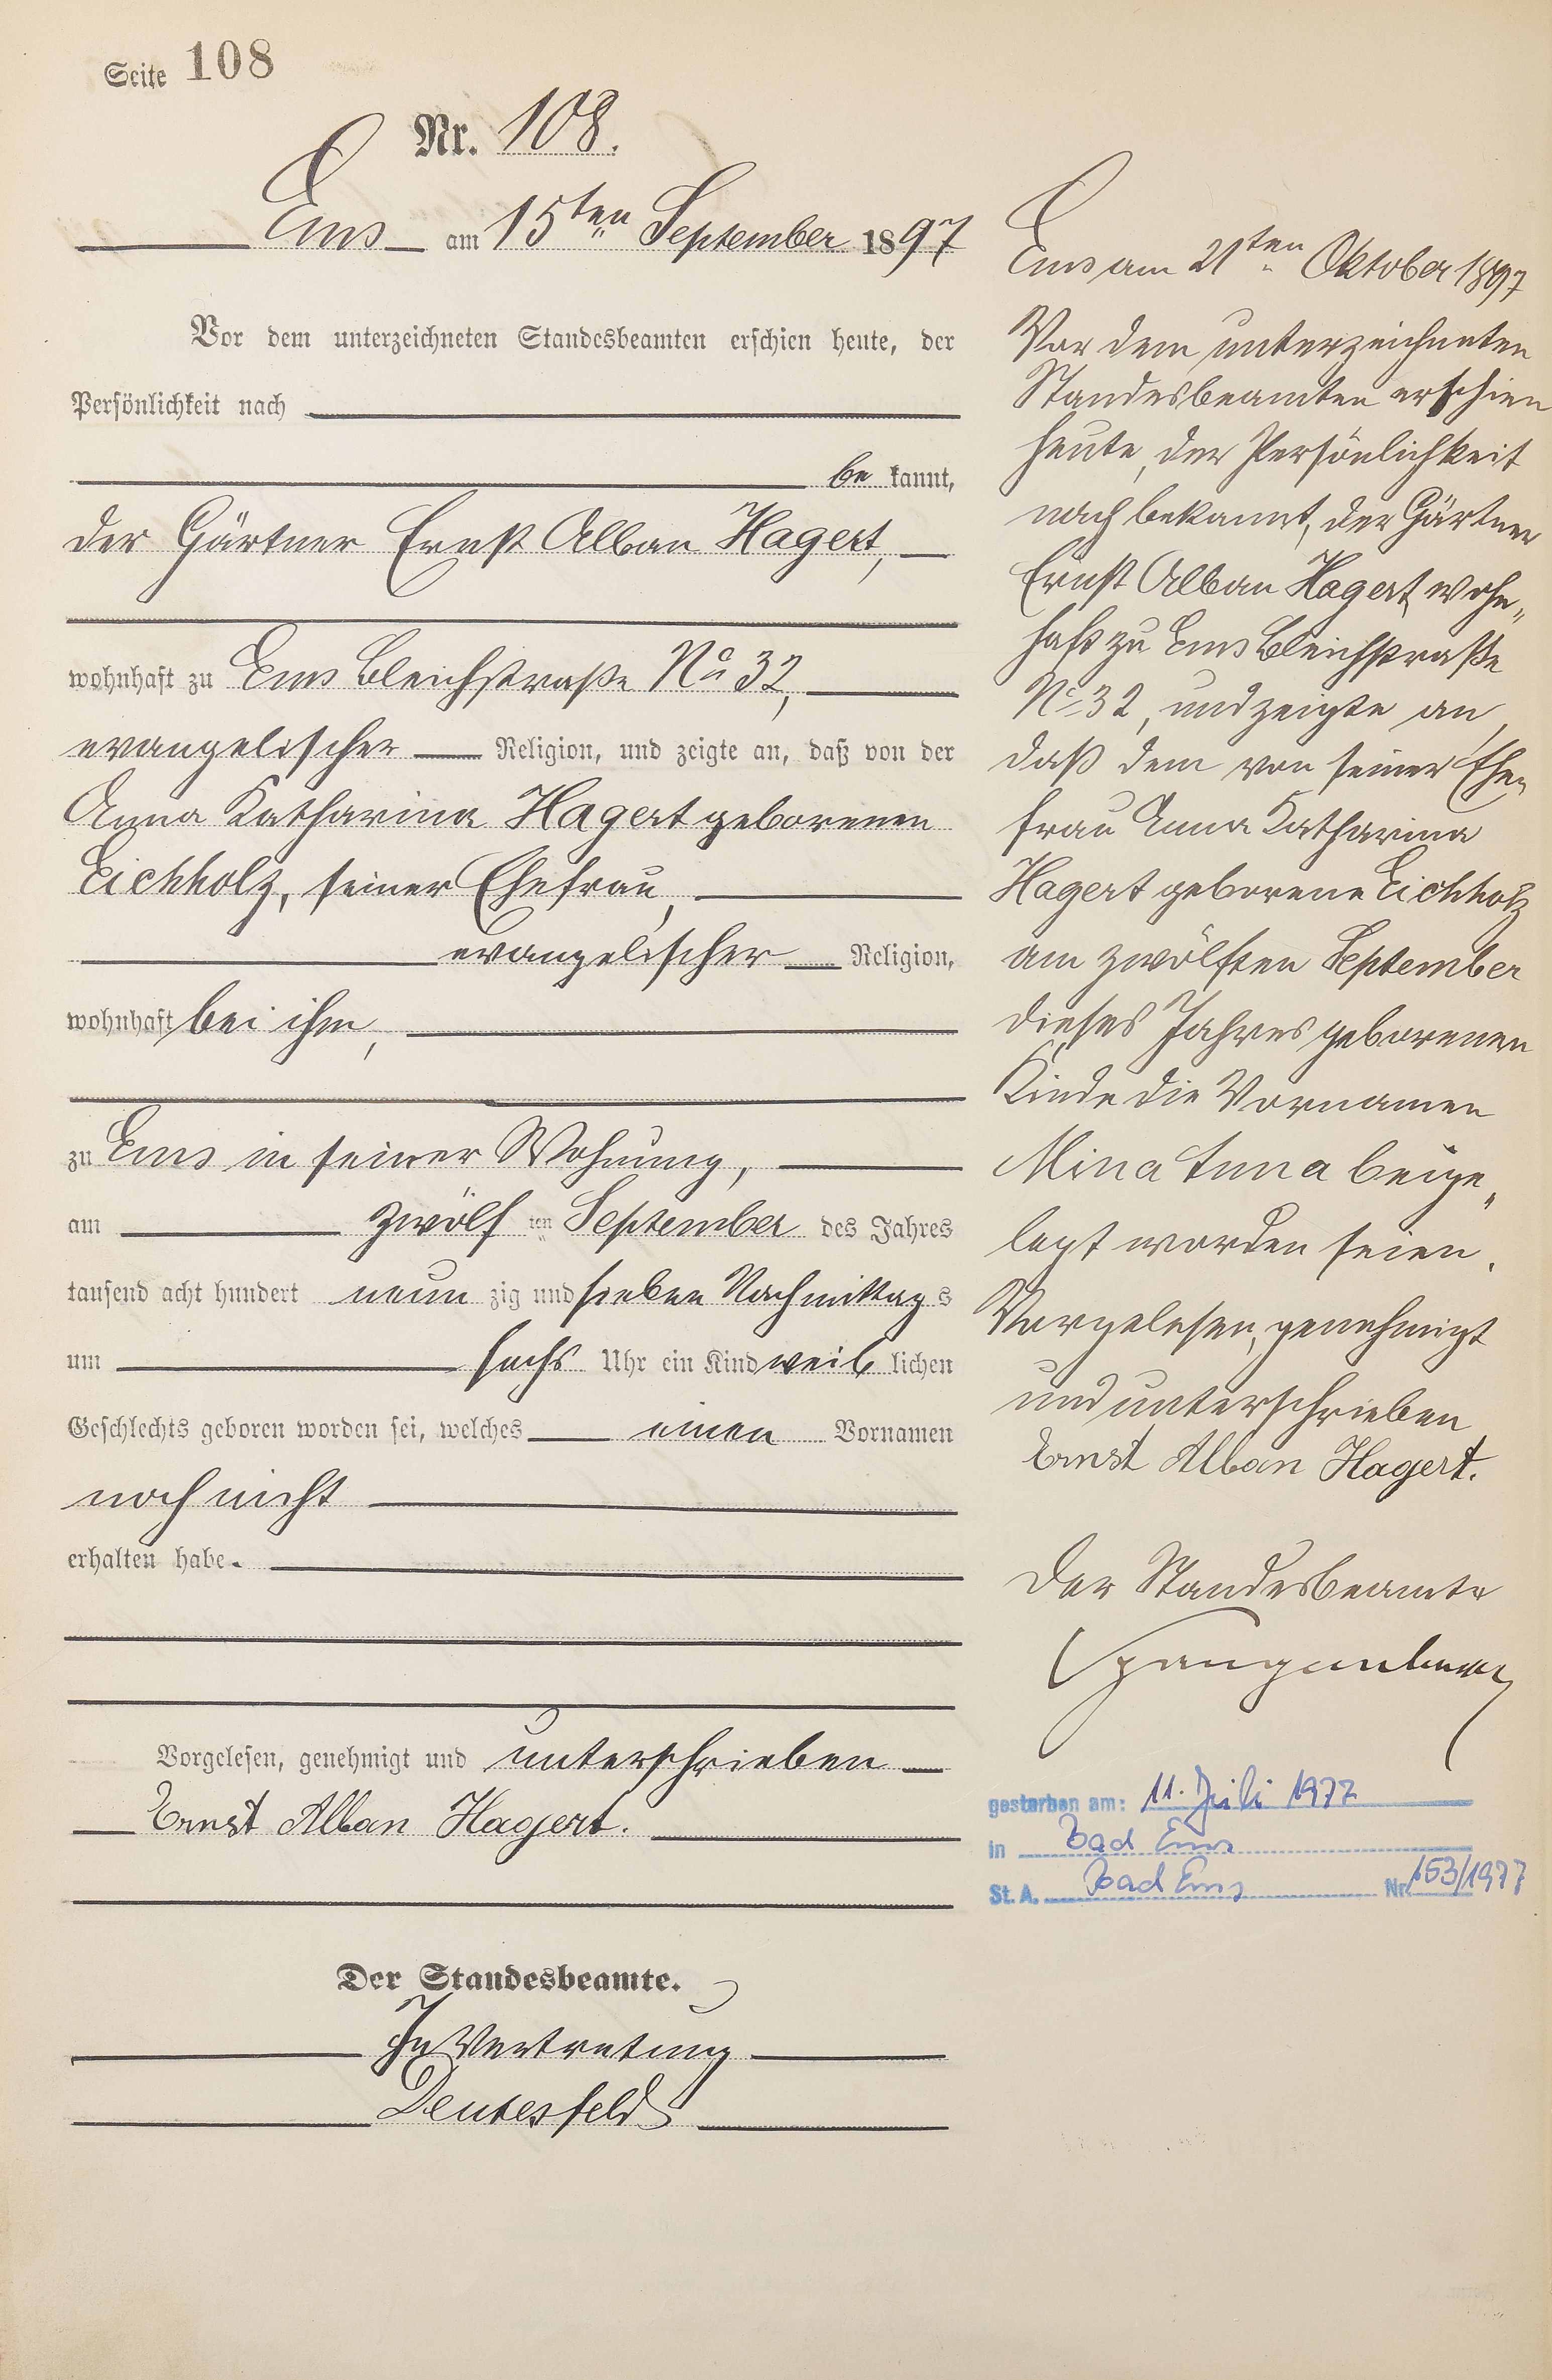 Seite 108
Nr. 108.
Ems am 15ten September 1897
Vor dem unterzeichneten Standesbeamten erschien heute, der
Persönlichkeit nach
be kannt,
der Gärtner Ernst Alban Hagert,
wohnhaft zu Ems Bleichstraße No 32,
evangelischer Religion, und zeigte an, daß von der
Anna Katharina Hagert geborenen
Eichholz, seiner Ehefrau,
evangelischer Religion,
wohnhaft bei ihm,
zu Ems in seiner Wohnung,
am zwölf ten September des Jahres
tausend acht hundert neun zig und sieben Nachmittags
um sechs Uhr ein Kind weib lichen
Geschlechts geboren worden sei, welches einen Vornamen
noch nicht
erhalten habe.
Vorgelesen, genehmigt und unterschrieben
Ernst Alban Hagert.
Der Standesbeamte.
In Vertretung
Deutesfeld
Ems am 21ten Oktober 1897
Vor dem unterzeichneten
Standesbeamten erschien
heute, der Persönlichkeit
nach bekannt, der Gärtner
Ernst Alban Hagert, wohn„
haft zu Ems Bleichstraße
No 32, und zeigte an,
daß dem von seiner Ehe„
frau Anna Katharina
Hagert geborene Eichholz
am zwölften September
dieses Jahres geborenen
Kinde die Vornamen
Mina Anna beige„
legt worden seien.
Vorgelesen, genehmigt
und unterschrieben
Ernst Alban Hagert.
Der Standesbeamte
Spangenberg
gestorben am: 11. Juli 1977
in Bad Ems
St. A. Bad Ems Nr. 153/1977